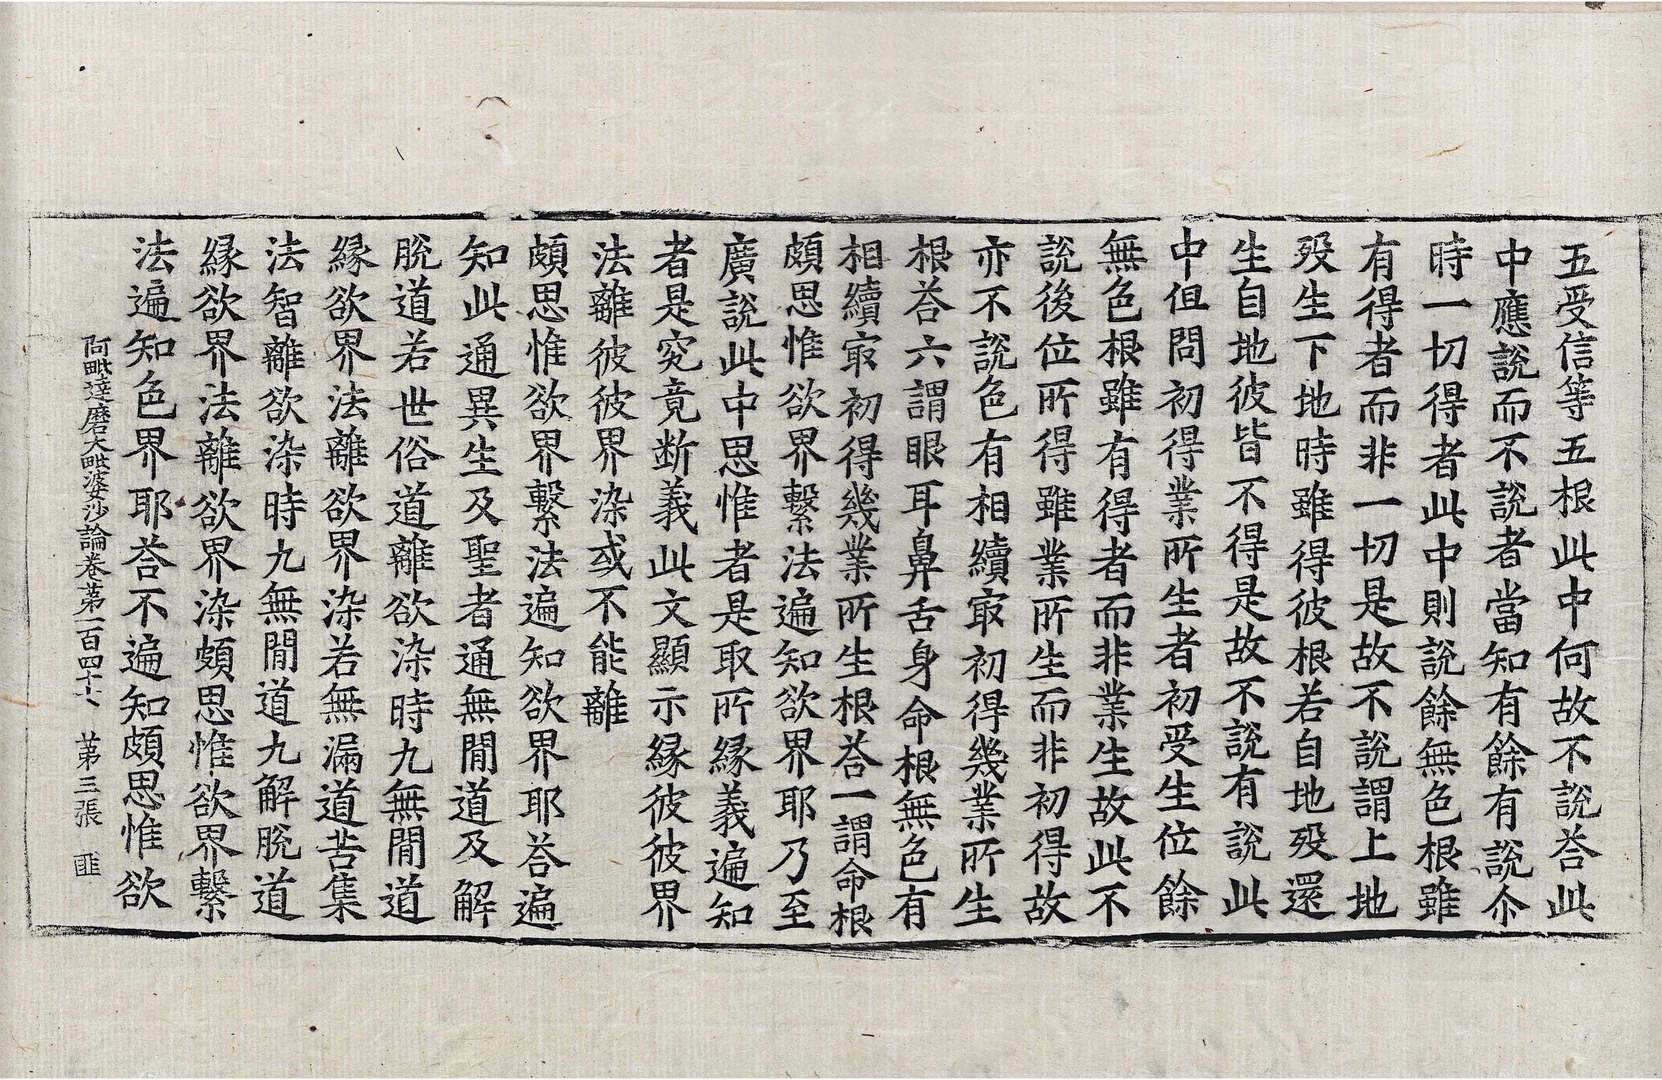 五受信等五根此中何故不說荅此
中應說而不說者當知有餘有說尒
時一切得者此中則說餘無色根雖
有得者而非一切是故不說謂上地
歿生下地時雖得彼根若自地歿還
生自地彼皆不得是故不說有說此
中但問初得業所生者初受生位餘
無色根雖有得者而非業生故此不
說後位所得雖業所生而非初得故
亦不說色有相續㝡初得幾業所生
根荅六謂眼耳鼻舌身命根無色有
相續㝡初得幾業所生根荅一謂命根
頗思惟欲界繫法遍知欲界耶乃至
廣說此中思惟者是取所緣義遍知
者是究竟断義此文顯示緣彼彼界
法離彼彼界染或不能離
頗思惟欲界繫法遍知欲界耶荅遍
知此通異生及聖者通無閒道及解
脫道若世俗道離欲染時九無閒道
緣欲界法離欲界染若無漏道苦集
法智離欲染時九無閒道九解脫道
緣欲界法離欲界染頗思惟欲界繫
法遍知色界耶荅不遍知頗思惟欲
阿毗達磨大毗婆沙論卷第一百四十六 第三張 匪